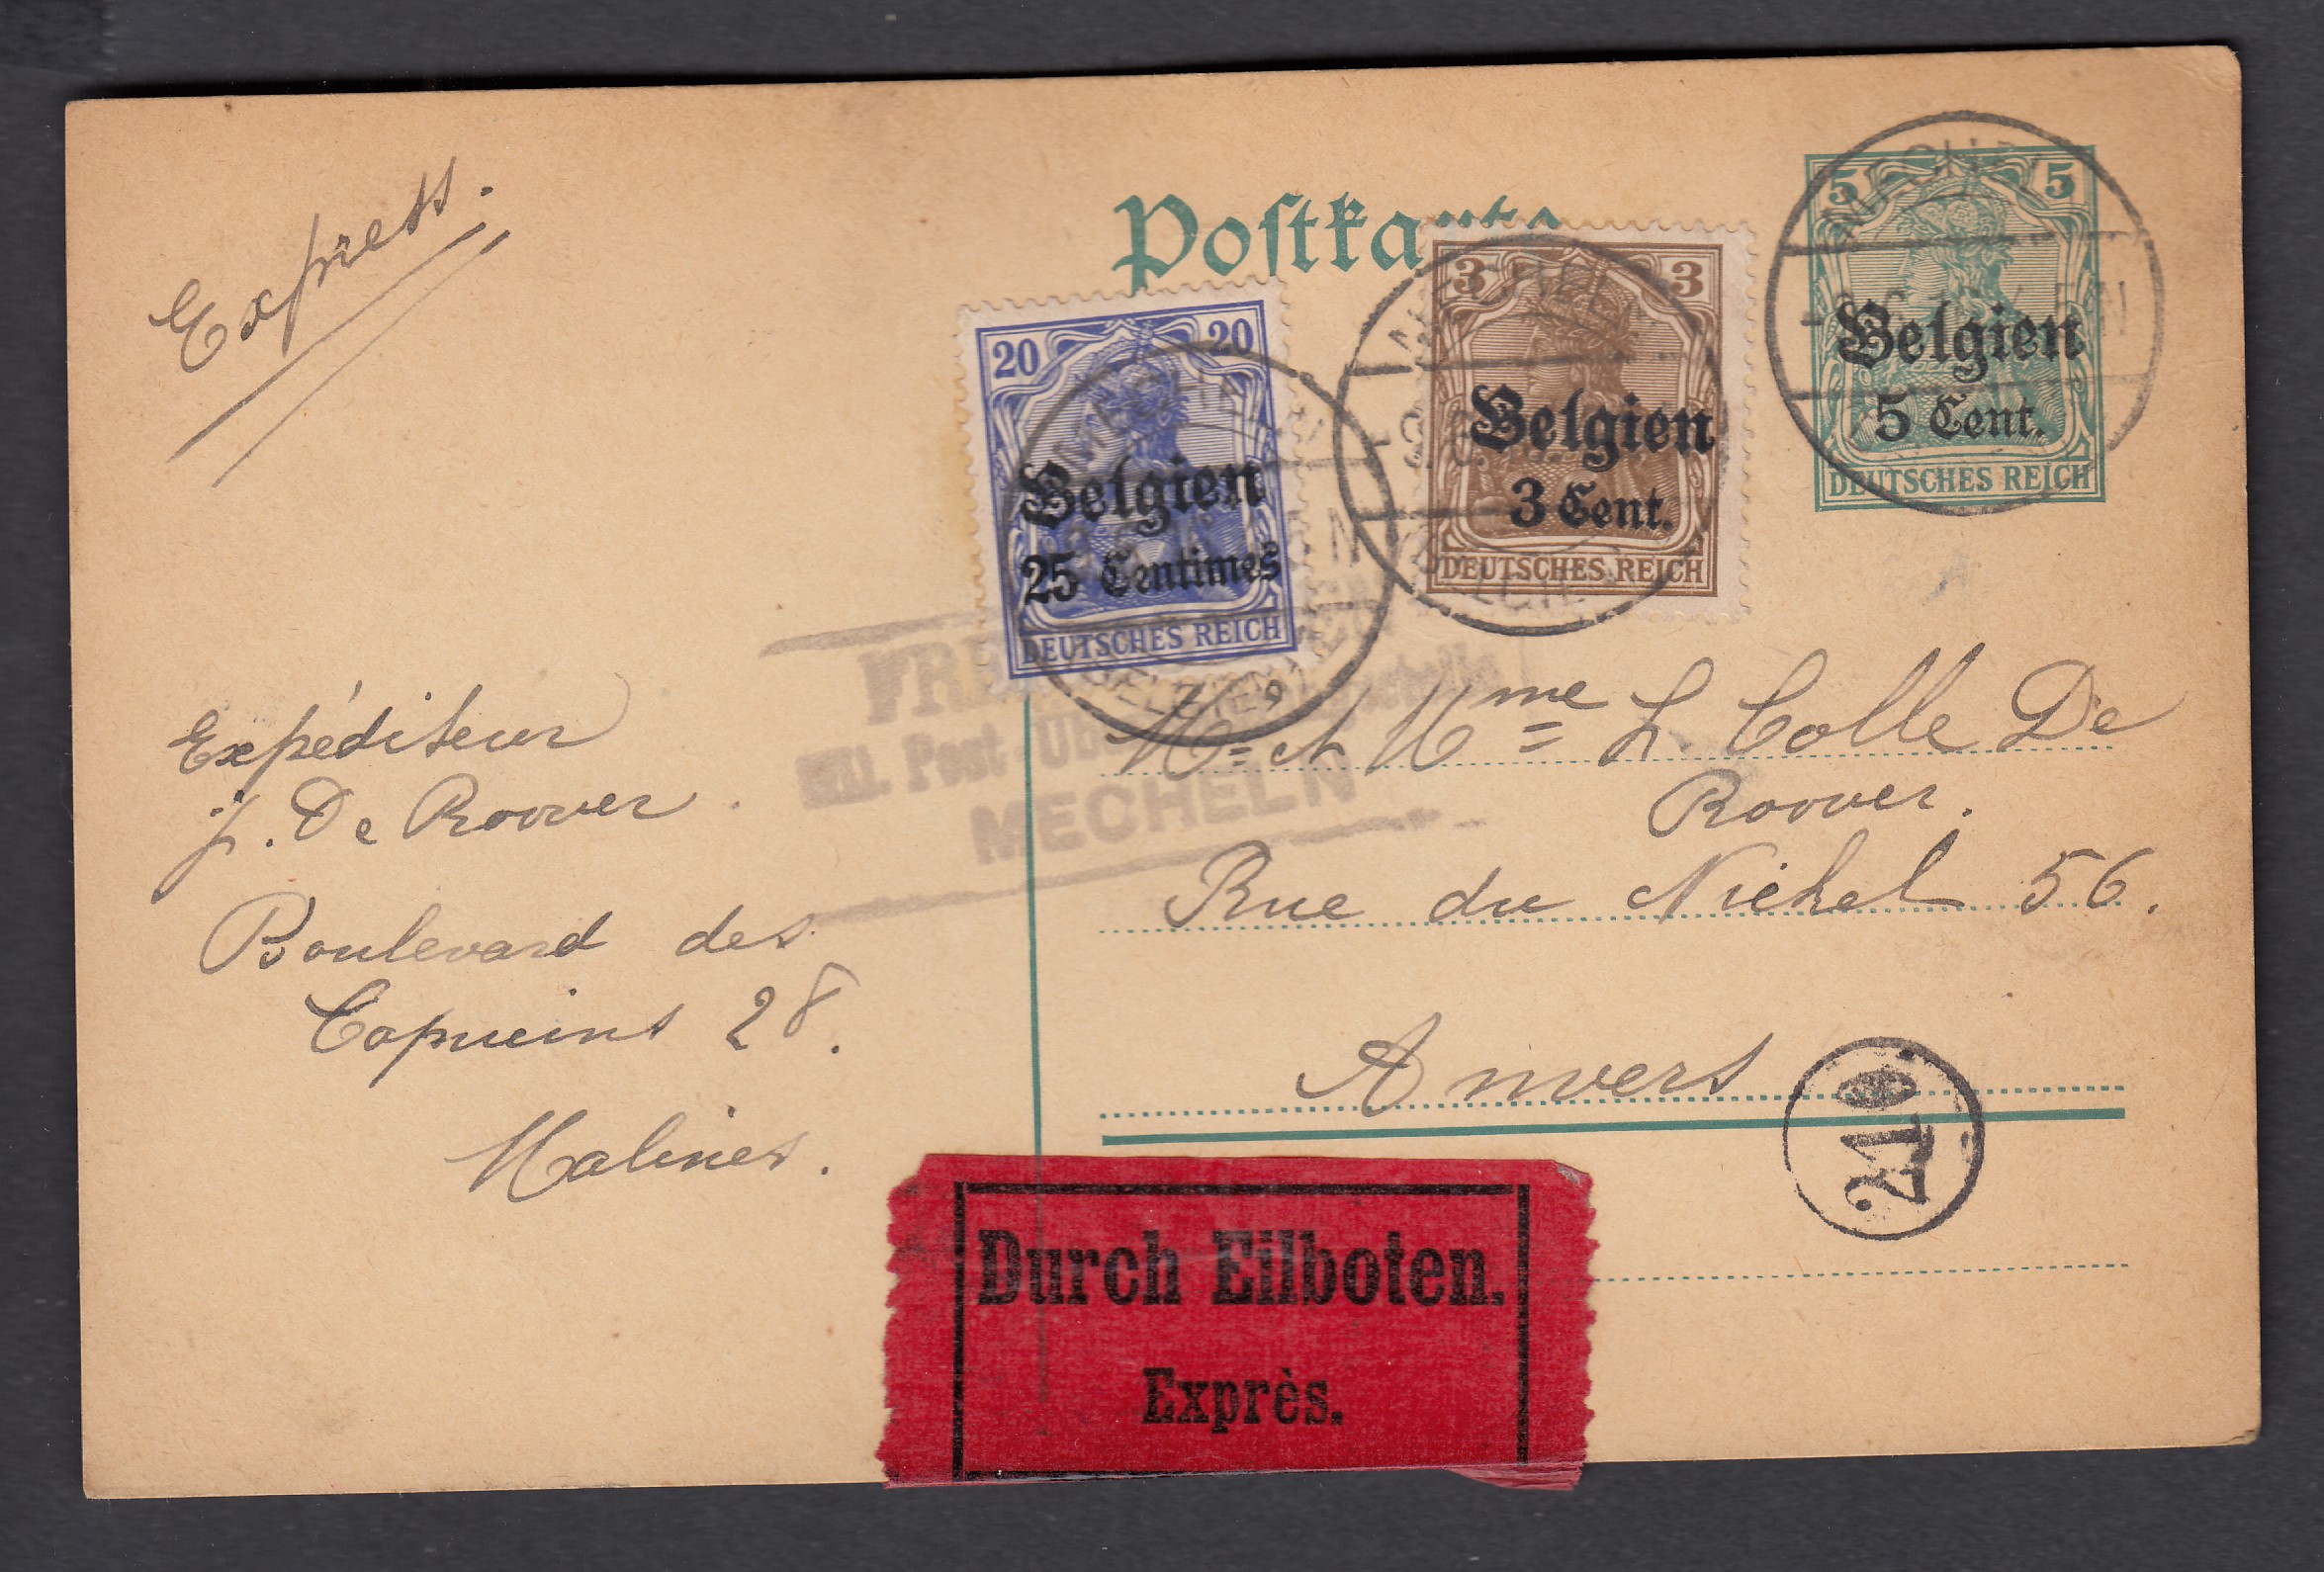 Express.
Postka
5 5
Belgien
5 Cent.
DEUTSCHES REICH
3 3
Belgien
3 Cent.
DEUTSCHES REICH
20 20
Belgien
25 Centimes
DEUTSCHES REICH
MECHELN
BELGIEN
FRE
Mil. Post-Üb
MECHELN
Mr et Mme L. Colle De
Roover.
Rue du Nichel 56.
Anvers
Expéditeur
J. De Roover.
Boulevard des
Capucins 28.
Malines.
210
Durch Eilboten.
Exprès.